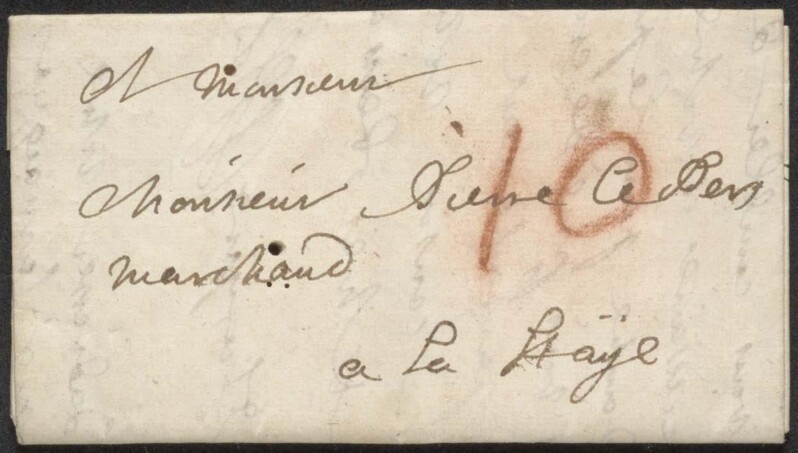 A Monsieur
Monsieur Pierre Le
marchand
a La Haÿe
10